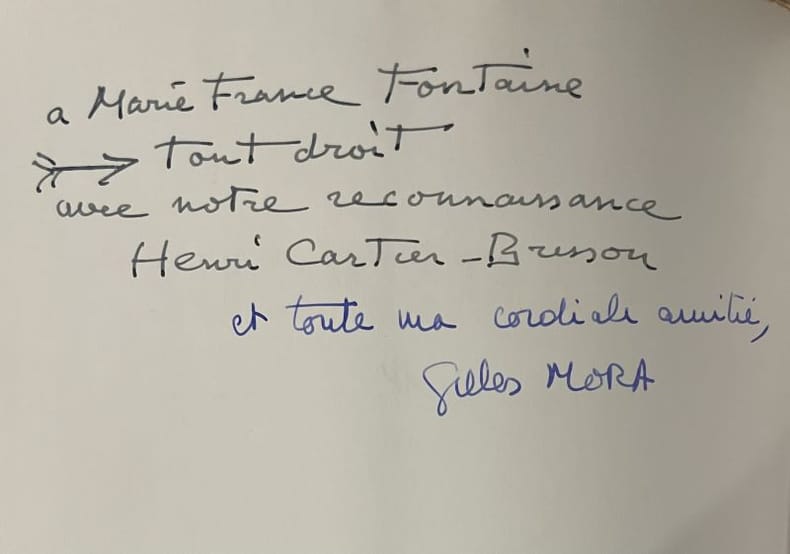 a Marie France Fontaine
tout droit
avec notre reconnaissance
Henri Cartier-Bresson
et toute ma cordiale amitié,
Gilles MORA